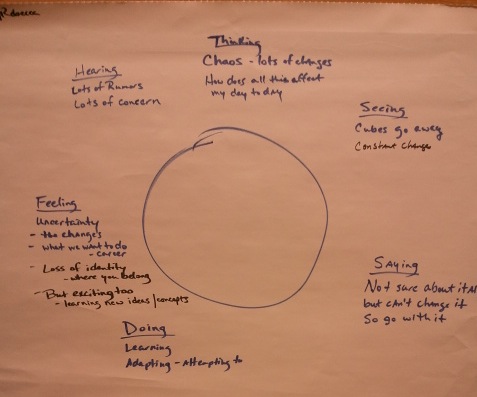 Thinking
Chaos - lots of changes
How does all this affect
my day to day
Hearing
Lots of Rumors
Lots of concern
Seeing
Cubes go away
Constant change
Feeling
Uncertainty
- the changes
- what we want to do
- career
- Loss of identity
- where you belong
- But exciting too
- learning new ideas/concepts
Saying
Not sure about it All
but can't change it
So go with it
Doing
Learning
Adapting - Attempting to